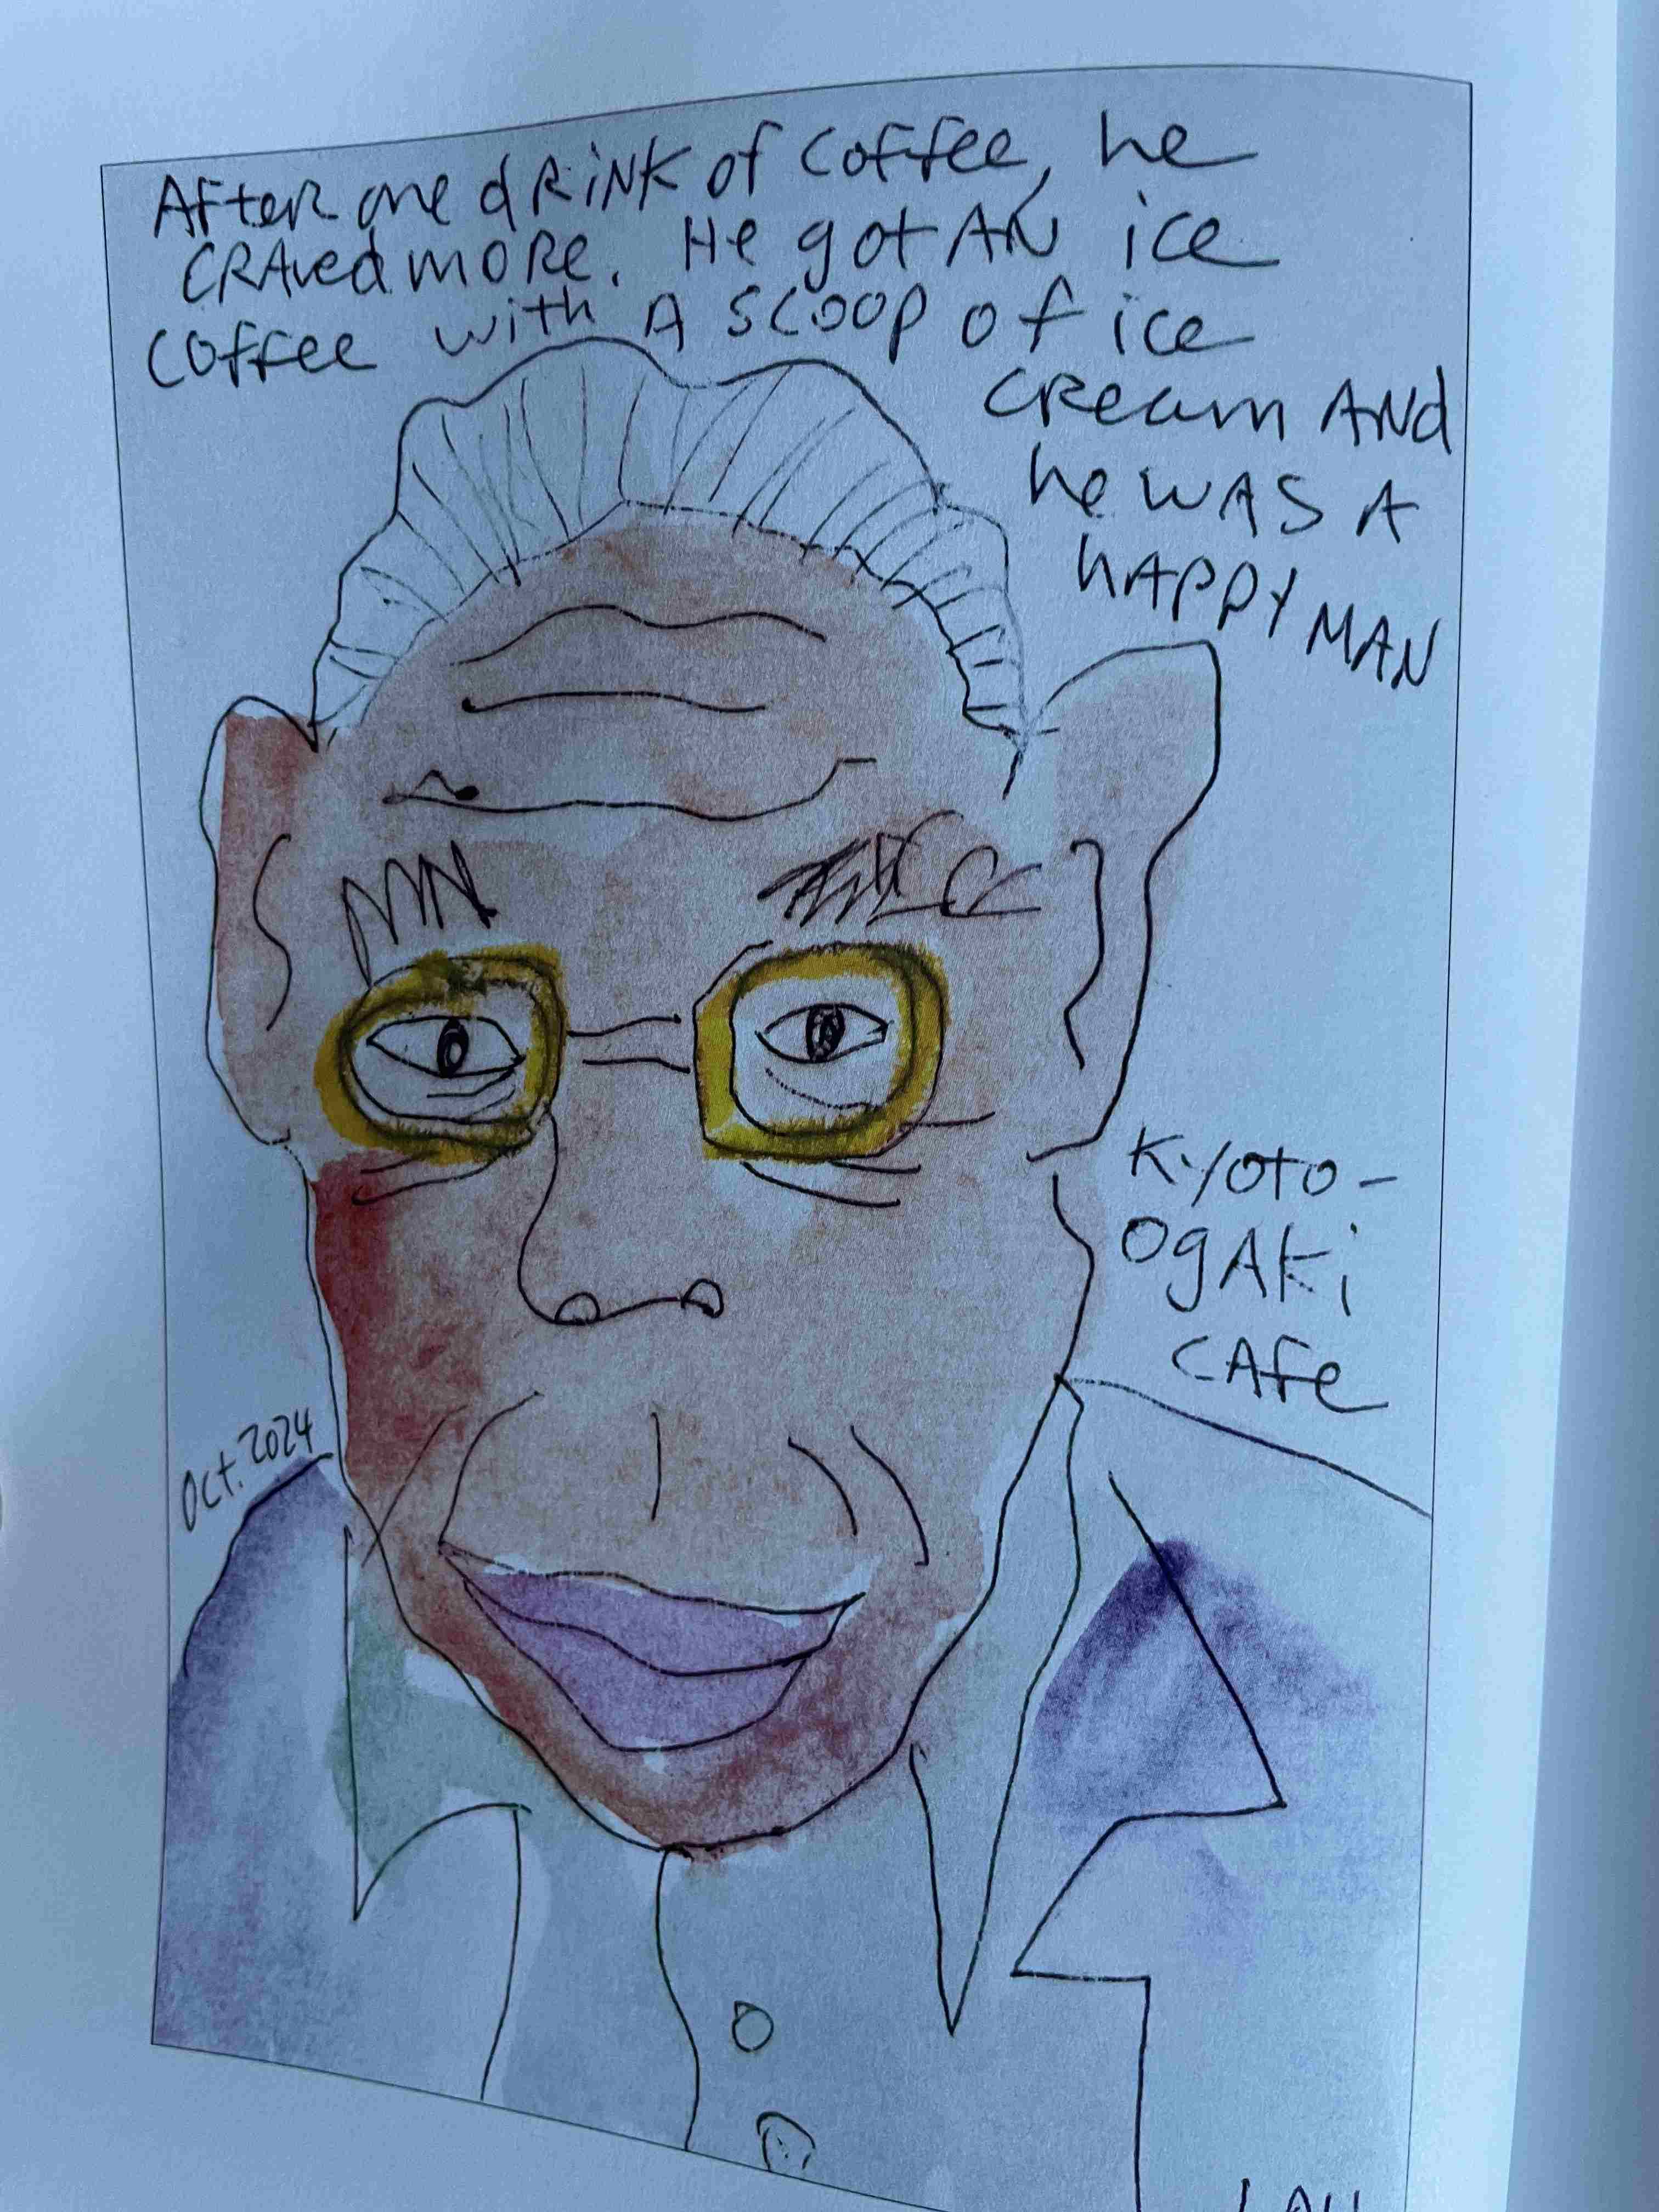 AFter one dRiNK of Coffee, he
CRAved moRe. He got AN ice
Coffee with A scoop of ice
CReam ANd
he WAS A
hAPPY MAN
Kyoto-
OgAKi
CAfe
Oct. 2024